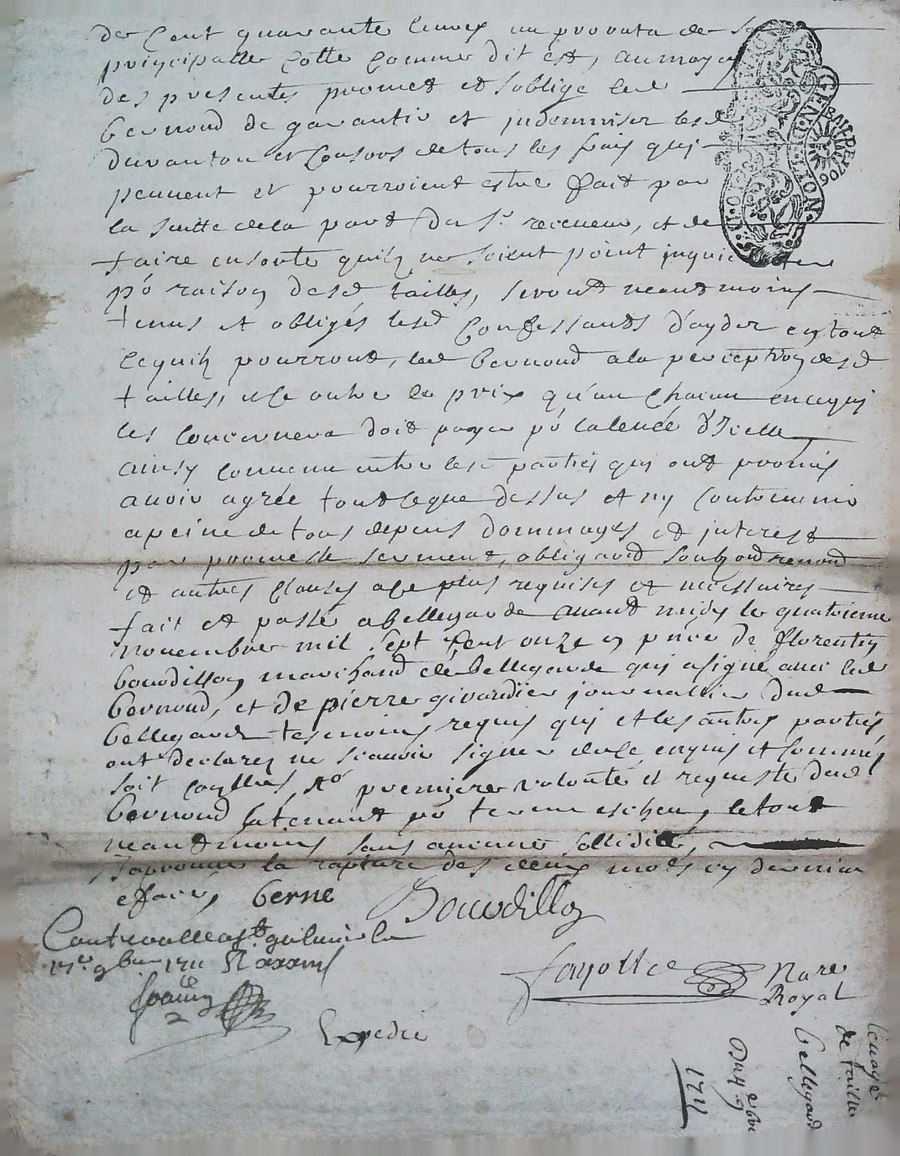 de cent quarante livres au prorata de sa
principalle cotte comme dit est, au moye
des presentes promet et s'oblige led
bernond de garantir et jndemniser lesd
duranton et consors de tous les frais quj
peuvent et pourroient estre fait par
la suitte de la part du Sr receveur, et de
faire en sorte quilz ne soient point jnquie
po raison desd tailles, seront neantmoins
tenus et obligés lesd confessants d'ayder en tout
ce quilz pourront, led bernond a la perception desd
tailles, outre le prix qu'un chacun en ce quj
les concernera doit payer po
ainsy convenu entre les parties quj ont promis
avoir agréé tout ce que dessus et ny contrevenir
a peine de tous depens dommages et jnterest
par promesse serment, obligaon
et autres clauses a ce plus requises et necessaires
fait et passé a bellegarde avant midy le quatrieme
novembre mil sept cent onze en pnce de florentin
bourdillon marchand de bellegarde quj a signé avec led
bernond, et de pierre girardier journallier dud
bellegarde tesmoins requis quj et les autres parties
ont declarez ne scavoir signer de ce enquis et sommés
soit a premiere volonté et requeste dud
bernond po terme escheu, le tout
neantmoins sans aucune sollidité,
J'aprouve la rapture des deux mots cy dernier
efacés, berne Bourdillon
Controllé a St galmier le
9bre 1711
Fayolle Nore
Royal
Expedié
GEN. DE LION
BAIL DE 1706
de taille
bellegard
Du 4e 9bre
1711